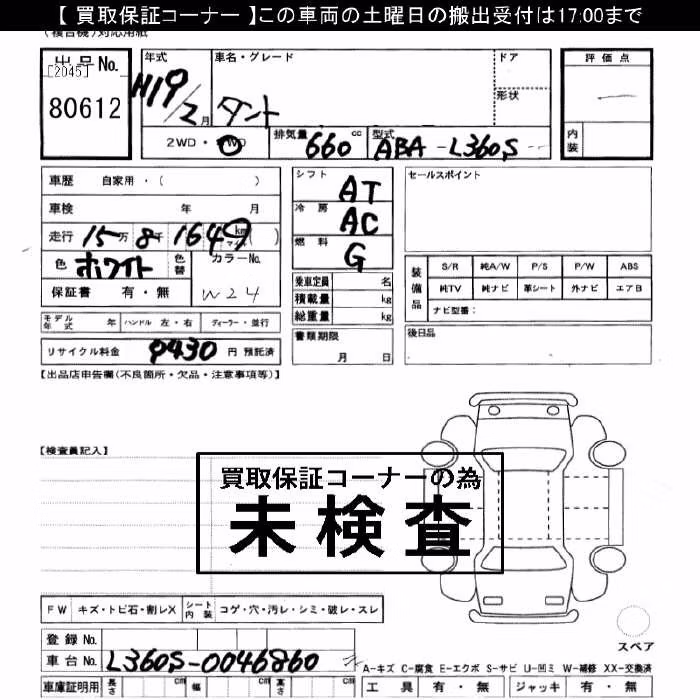 【 買取保証コーナー 】この車両の土曜日の搬出受付は17:00まで
(複合機)対応用紙
出品No.
[2045]
80612
年式
H19/2月
車名・グレード
タント
ドア
形状
評価点
—
内装
2WD・4WD
排気量 660 cc
型式 ABA-L360S
車歴 自家用・( )
車検 年 月
走行 15万8千1649 km マイル ( )
色 ホワイト
色替
カラーNo. W24
保証書 有・無
シフト AT
冷房 AC
燃料 G
乗車定員 名
積載量 kg
総重量 kg
セールスポイント
装備品
S/R 純A/W P/S P/W ABS
純TV 純ナビ 革シート 外ナビ エアB
ナビ型番:
モデル年式 年 ハンドル 左・右 ディーラー・並行
リサイクル料金 9430 円 預託済
書類期限 月 日
後日品
【出品店申告欄(不良箇所・欠品・注意事項等)】
【検査員記入】
買取保証コーナーの為
未検査
FW キズ・トビ石・割レX シート内装 コゲ・穴・汚レ・シミ・破レ・スレ
スペア
登録No.
車台No. L360S-0046860
A-キズ C-腐食 E-エクボ S-サビ U-凹ミ W-補修 XX-交換済
車庫証明用 長さ cm 幅 cm 高さ cm
工具 有・無 ジャッキ 有・無